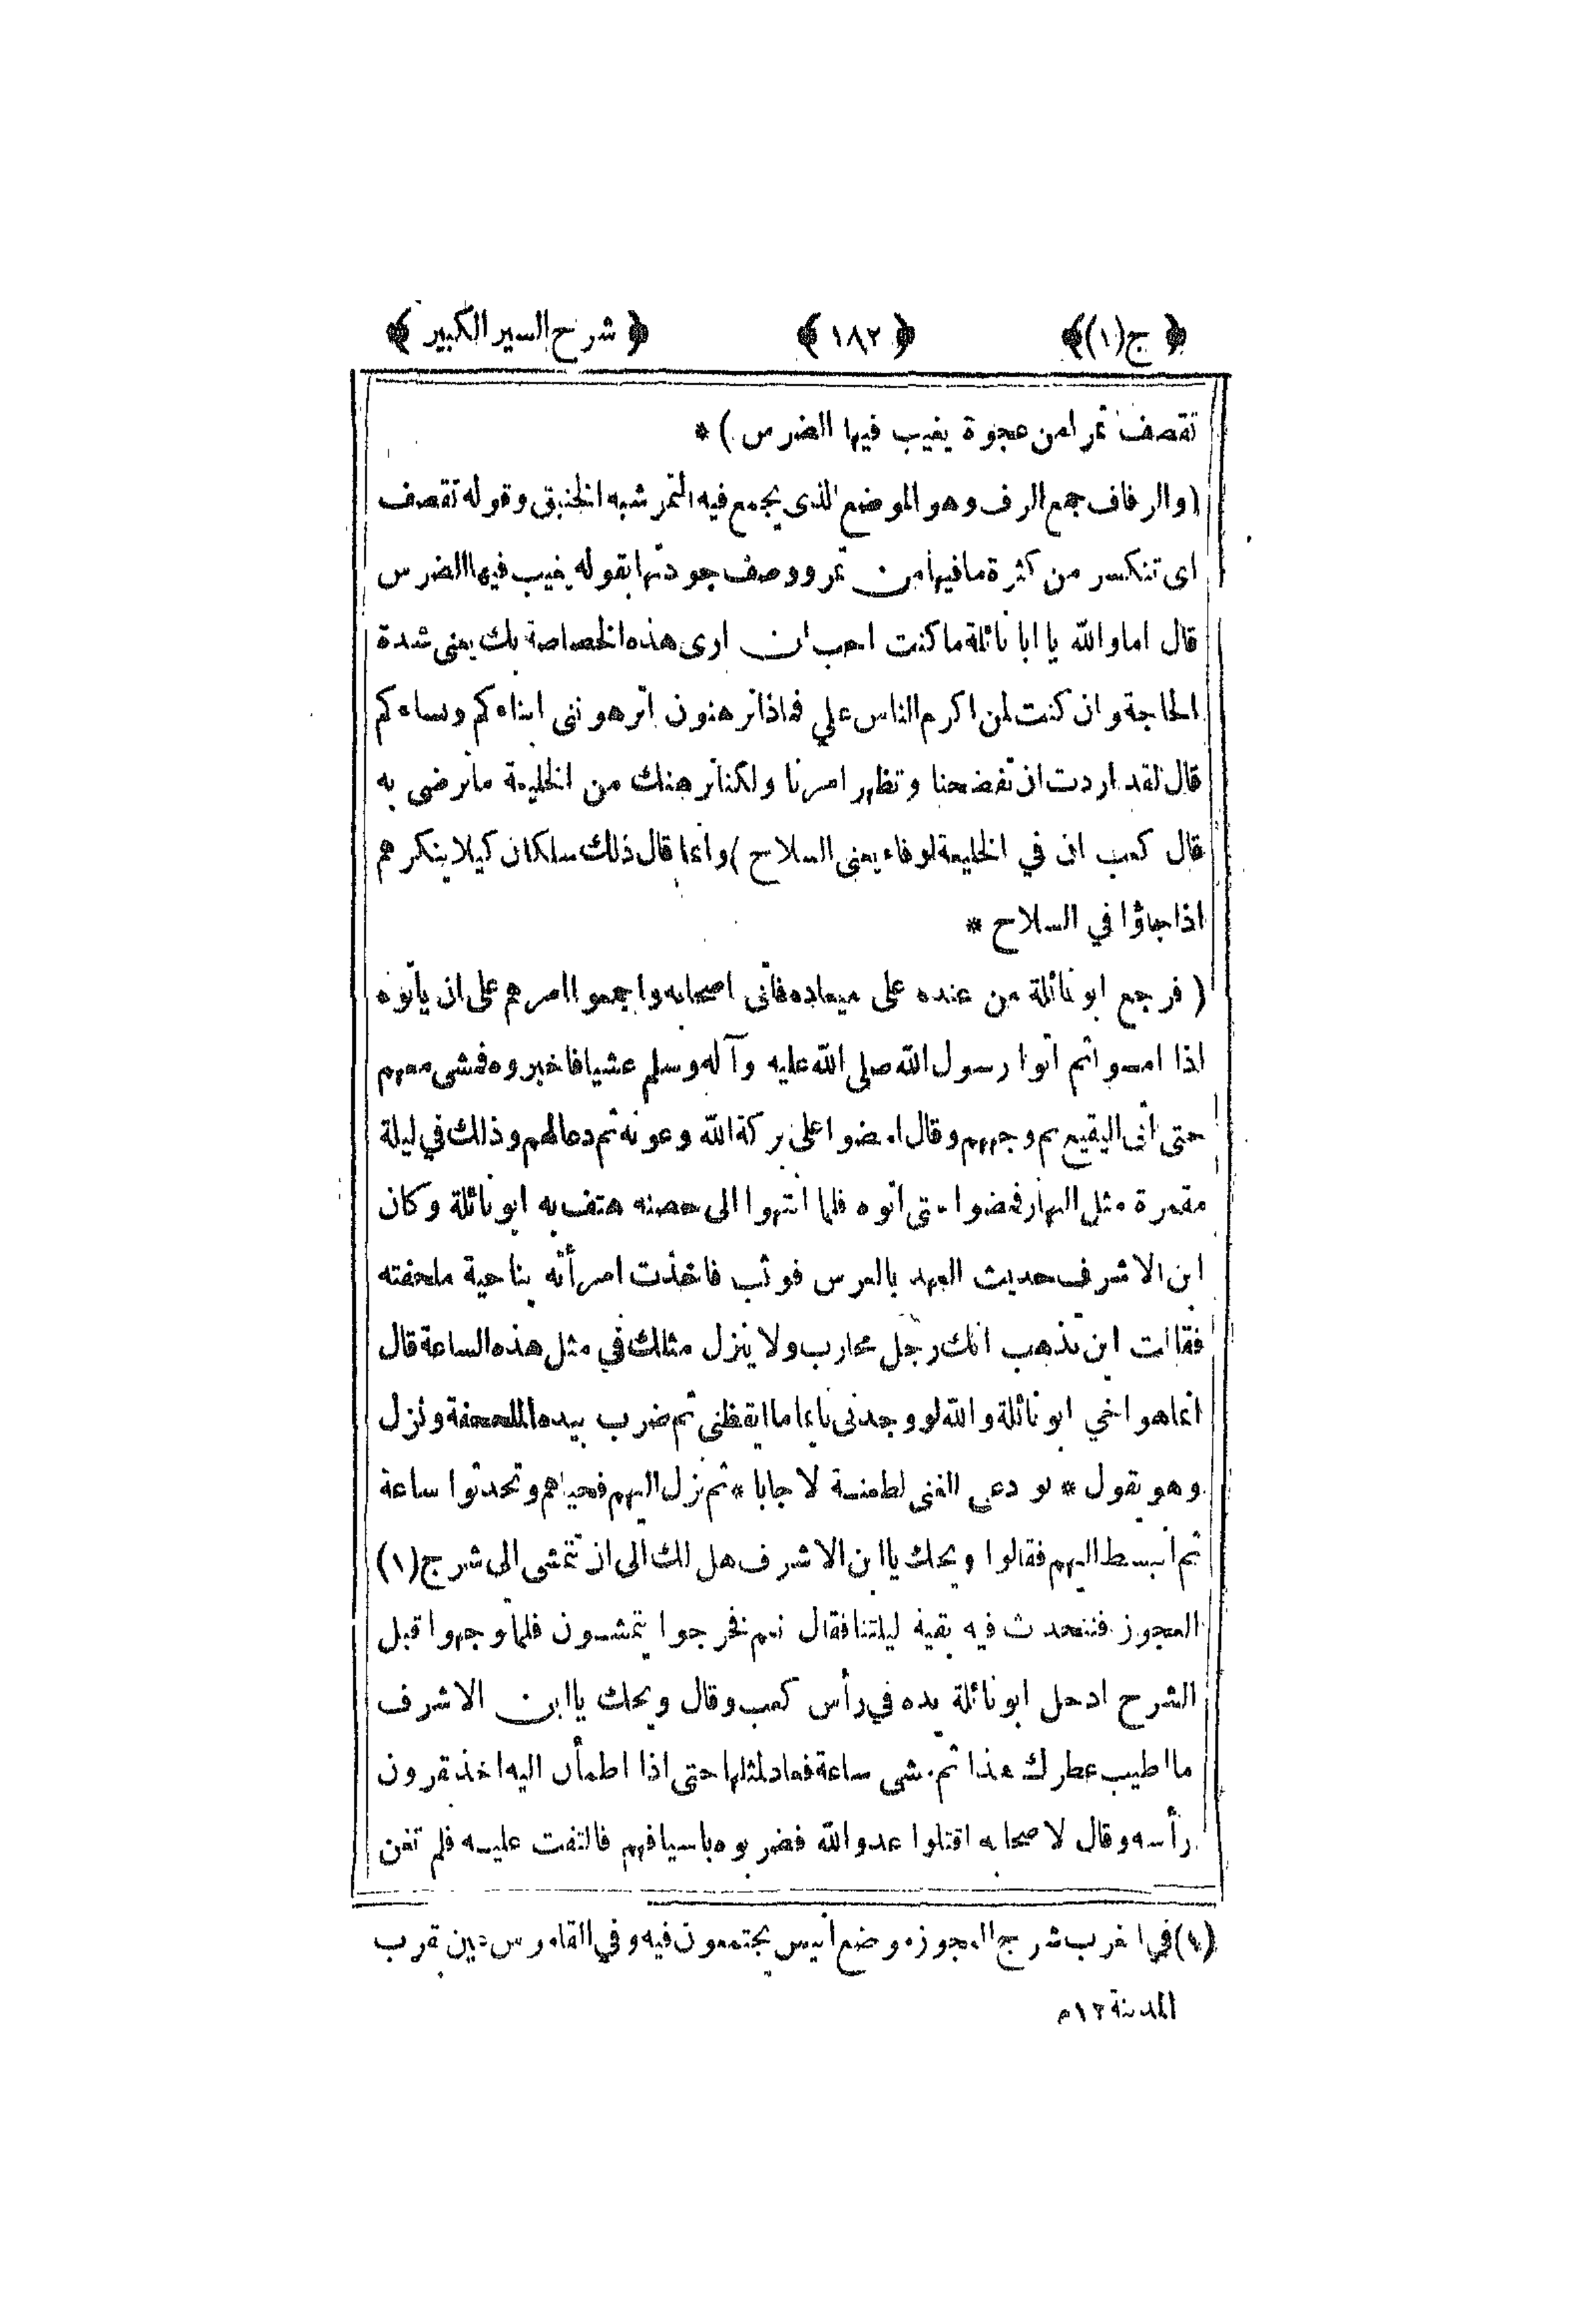 ﴿ ج(١) ﴾ ﴿ ١٨٢ ﴾ ﴿ شرح السير الكبير ﴾
تقصف تمرا من عجوة يغيب فيها الضرس ) *
( والرفاف جمع الرف وهو الموضع الذى يجمع فيه التمر شبه الخنبق وقوله تقصف
اى تنكسر من كثرة مافيها من تمر ووصف جودتها بقوله يغيب فيها الضرس
قال اما والله يا ابا نائلة ما كنت احب ان ارى هذه الخصاصة بك يعنى شدة
الحاجة وان كنت لمن اكرم الناس علي فماذا ترهنون اترهوننى ابناءكم ونساءكم
قال لقد اردت ان تفضحنا وتظهر امرنا ولكنا نرهنك من الخليعة ماترضى به
قال كعب ان في الخليعة لوفاء يعنى السلاح ) وانما قال ذلك سلكان كيلا ينكرهم
اذا جاؤا في السلاح *
( فرجع ابو نائلة من عنده على ميعاده فاتى اصحابه واجمعوا امرهم على ان يأتوه
اذا امسوا ثم اتوا رسول الله صلى الله عليه وآله وسلم عشيا فاخبروه فمشى معهم
حتى اتى البقيع ثم وجههم وقال امضوا على بركة الله وعونه ثم دعا لهم وذلك في ليلة
مقمرة مثل النهار فمضوا حتى اتوه فلما انتهوا الى حصنه هتف به ابو نائلة وكان
ابن الاشرف حديث العهد بالعرس فوثب فاخذت امرأته بناحية ملحفته
فقالت اين تذهب انك رجل محارب ولا ينزل مثلك في مثل هذه الساعة قال
انما هو اخي ابو نائلة والله لو وجدنى نائما ما ايقظنى ثم ضرب بيده الملحفة ونزل
وهو يقول * لو دعي الفتى لطعنة لاجابا * ثم نزل اليهم فحياهم وتحدثوا ساعة
ثم انبسط اليهم فقالوا ويحك يا ابن الاشرف هل لك الى ان تتمشى الى شرج (١)
العجوز فنتحدث فيه بقية ليلتنا فقال نعم فخرجوا يتمشون فلما توجهوا قبل
الشرح ادخل ابو نائلة يده في رأس كعب وقال ويحك يا ابن الاشرف
ما اطيب عطرك هذا ثم مشى ساعة فعاد لمثلها حتى اذا اطمأن اليه اخذ بقرون
رأسه وقال لاصحابه اقتلوا عدو الله فضربوه باسيافهم فالتفت عليه فلم تغن
(١) في المغرب شرج العجوز موضع أنيس يجتمعون فيه وفي القاموس قرب
المدينة ١٢ م